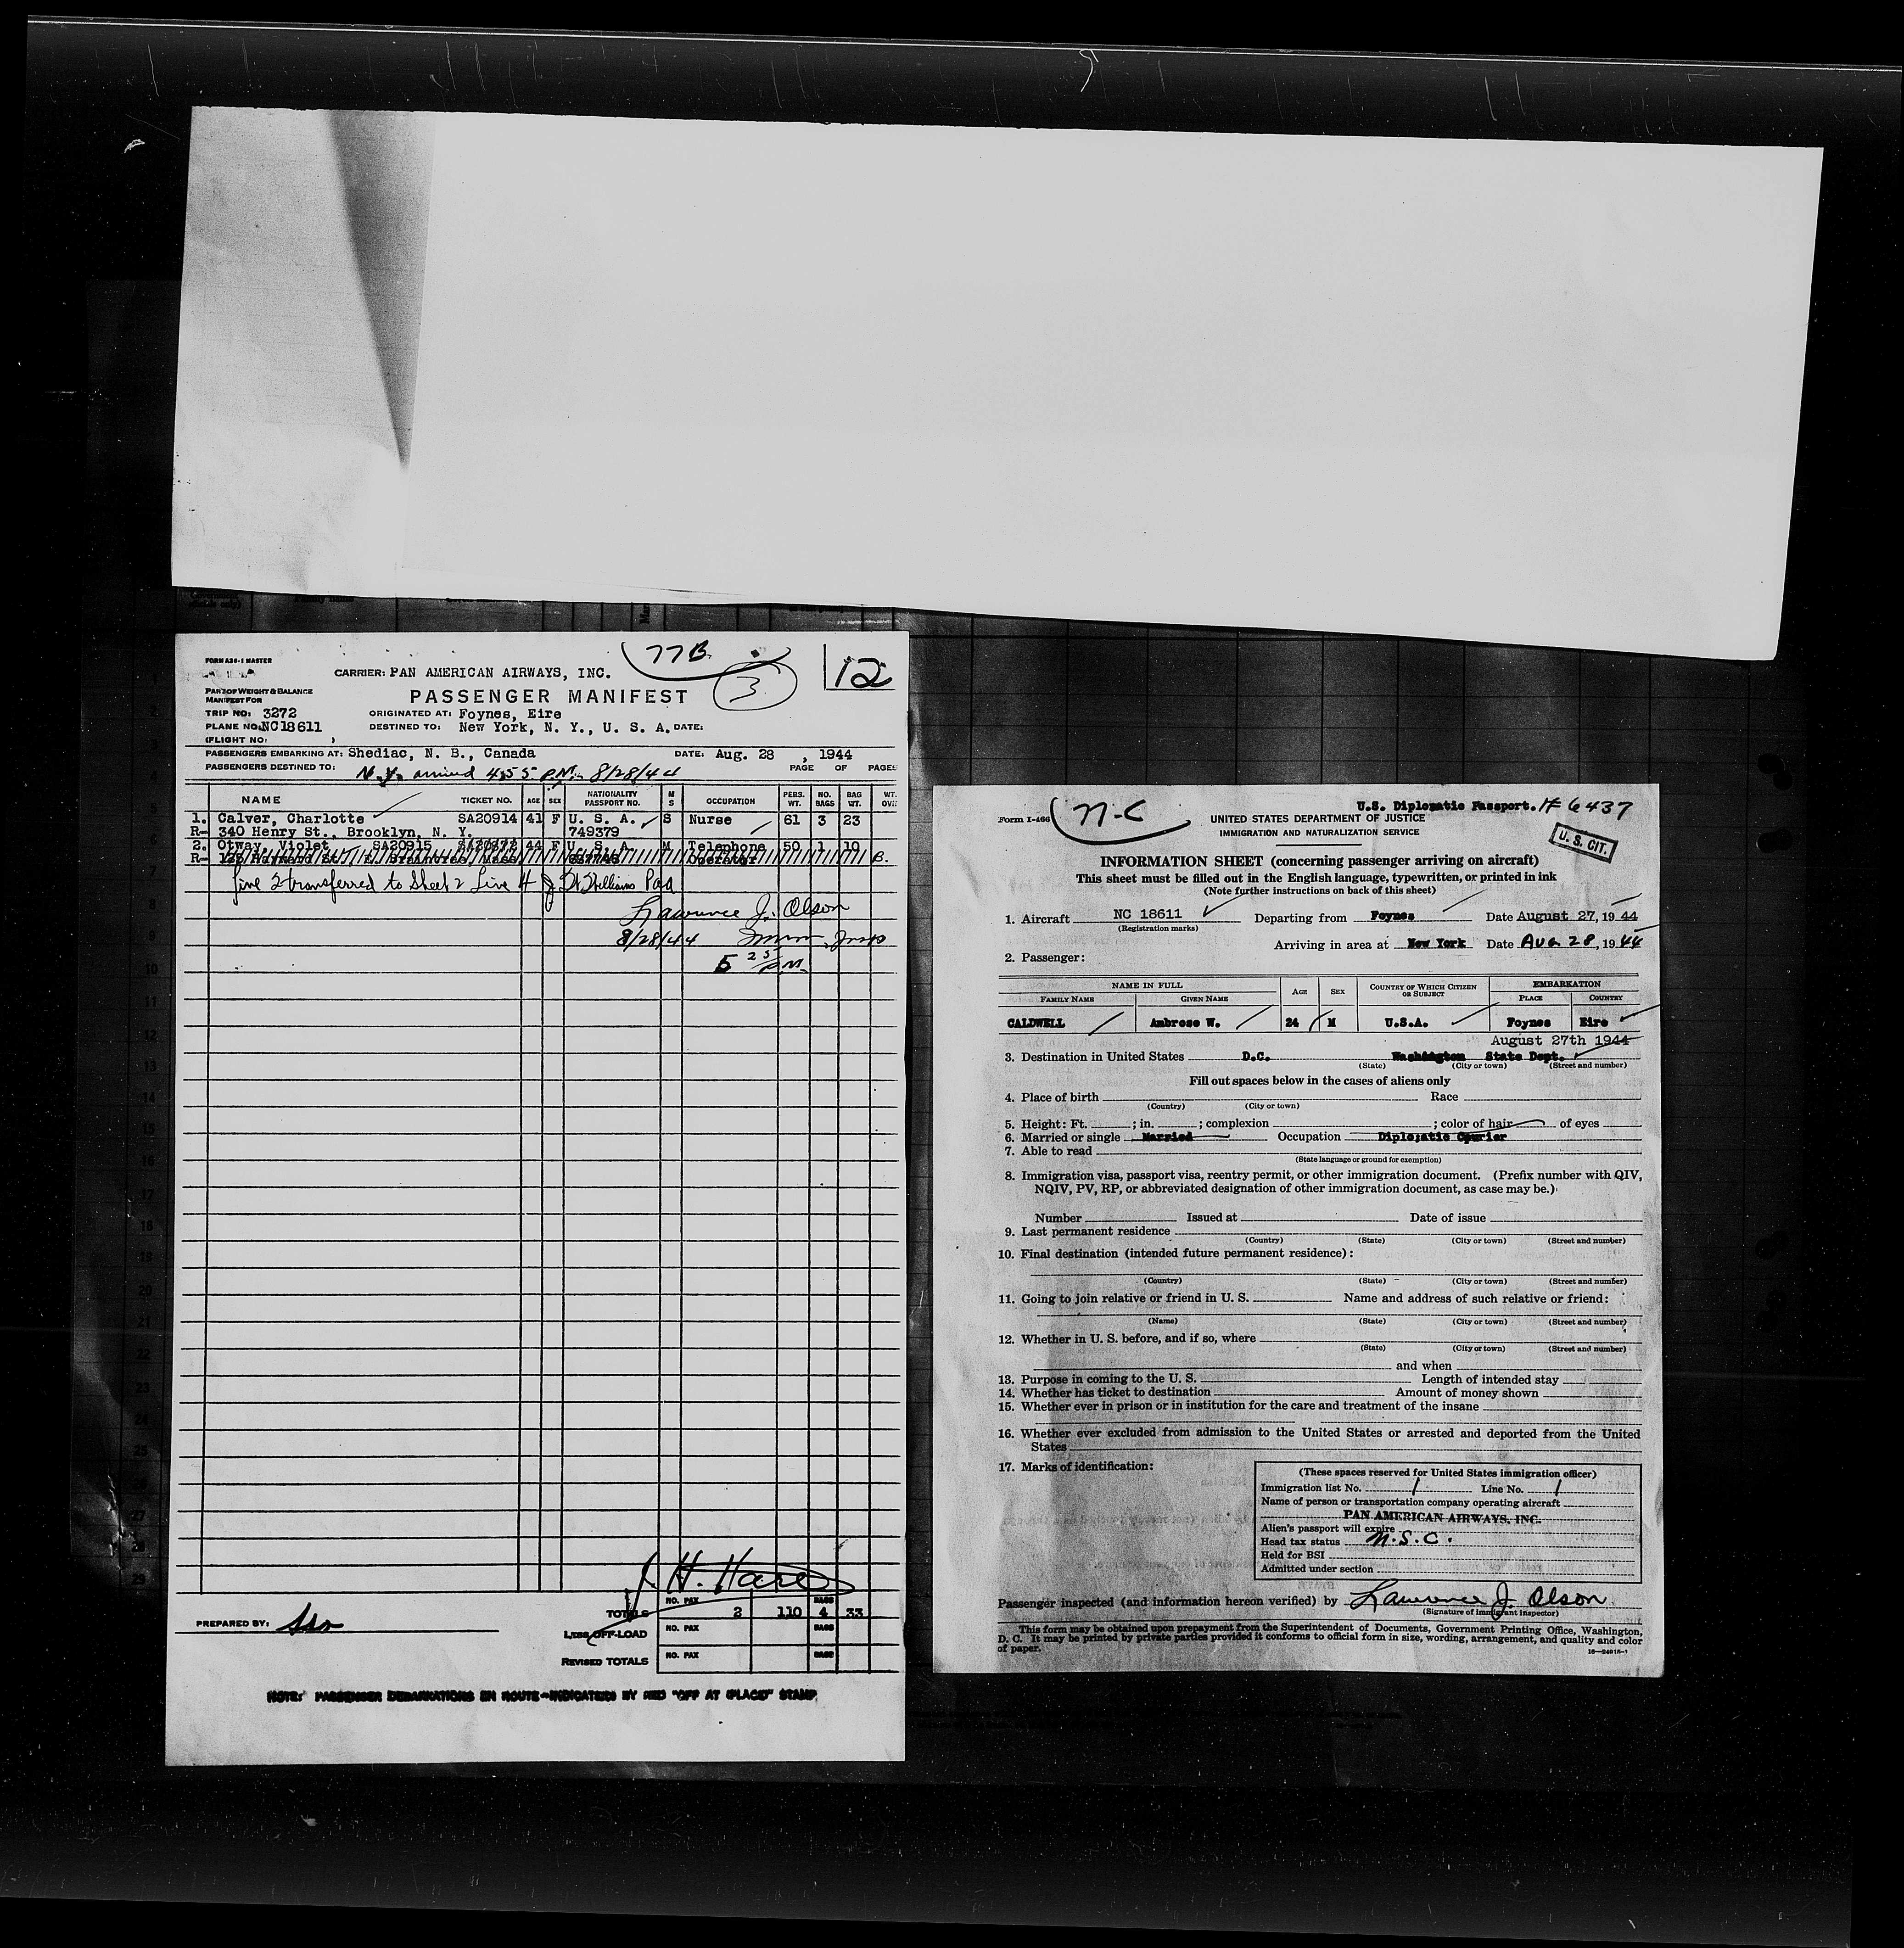 FORM A36-1 MASTER
77B
3
12
CARRIER: PAN AMERICAN AIRWAYS, INC.
PART OF WEIGHT & BALANCE
MANIFEST FOR
PASSENGER MANIFEST
TRIP NO: 3272
ORIGINATED AT: Foynes, Eire
PLANE NO: NC18611
DESTINED TO: New York, N. Y., U. S. A. DATE:
(FLIGHT NO: )
PASSENGERS EMBARKING AT: Shediac, N. B., Canada DATE: Aug. 28 , 1944
PASSENGERS DESTINED TO: N.Y. arrived 4:55 P.M. 8/28/44 PAGE OF PAGES
NAME TICKET NO. AGE SEX NATIONALITY PASSPORT NO. M S OCCUPATION PERS. WT. NO. BAGS BAG WT. WT.
1. Calver, Charlotte SA20914 41 F U. S. A. S Nurse 61 3 23
R- 340 Henry St., Brooklyn, N. Y. 749379
2. Otway, Violet SA20915 44 F U. S. A. M Telephone 50 1 10
R- Hayward St., E. Braintree, Mass. Operator B.
line 2 transferred to Sheet 2 Line 4
Lawrence J. Olson
8/28/44
5 25 P.M.
7
8
9
10
11
12
13
14
15
16
17
18
19
20
21
22
23
24
25
26
27
28
29
J. H. Hare
TOTALS NO. PAX 2 110 BAGS 4 33
PREPARED BY:
LESS OFF-LOAD NO. PAX BAGS
REVISED TOTALS NO. PAX BAGS
NOTE: PASSENGER DEBARKATIONS EN ROUTE-INDICATED BY RED "OFF AT (PLACE)" STAMP
Form I-466
N-C
U.S. Diplomatic Passport. # 6437
UNITED STATES DEPARTMENT OF JUSTICE
IMMIGRATION AND NATURALIZATION SERVICE
U. S. CIT.
INFORMATION SHEET (concerning passenger arriving on aircraft)
This sheet must be filled out in the English language, typewritten, or printed in ink
(Note further instructions on back of this sheet)
1. Aircraft NC 18611 Departing from Foynes Date August 27, 1944
(Registration marks)
Arriving in area at New York Date AUG 28, 1944
2. Passenger:
NAME IN FULL AGE SEX COUNTRY OF WHICH CITIZEN OR SUBJECT EMBARKATION
FAMILY NAME GIVEN NAME PLACE COUNTRY
CALDWELL Ambrose W. 24 M U.S.A. Foynes Eire
August 27th 1944
3. Destination in United States D.C. Washington State Dept.
(State) (City or town) (Street and number)
Fill out spaces below in the cases of aliens only
4. Place of birth Race
(Country) (City or town)
5. Height: Ft. ; in. ; complexion ; color of hair of eyes
6. Married or single Married Occupation Diplomatic Courier
7. Able to read
(State language or ground for exemption)
8. Immigration visa, passport visa, reentry permit, or other immigration document. (Prefix number with QIV,
NQIV, PV, RP, or abbreviated designation of other immigration document, as case may be.)
Number Issued at Date of issue
9. Last permanent residence
(Country) (State) (City or town) (Street and number)
10. Final destination (intended future permanent residence):
(Country) (State) (City or town) (Street and number)
11. Going to join relative or friend in U. S. Name and address of such relative or friend:
(Name) (State) (City or town) (Street and number)
12. Whether in U. S. before, and if so, where
(State) (City or town) (Street and number)
and when
13. Purpose in coming to the U. S. Length of intended stay
14. Whether has ticket to destination Amount of money shown
15. Whether ever in prison or in institution for the care and treatment of the insane
16. Whether ever excluded from admission to the United States or arrested and deported from the United
States
17. Marks of identification:
(These spaces reserved for United States immigration officer)
Immigration list No. 1 Line No. 1
Name of person or transportation company operating aircraft
PAN AMERICAN AIRWAYS, INC.
Alien's passport will expire
Head tax status N.S.C.
Held for BSI
Admitted under section
Passenger inspected (and information hereon verified) by Lawrence J. Olson
(Signature of immigrant inspector)
This form may be obtained upon prepayment from the Superintendent of Documents, Government Printing Office, Washington,
D. C. It may be printed by private parties provided it conforms to official form in size, wording, arrangement, and quality and color
of paper.